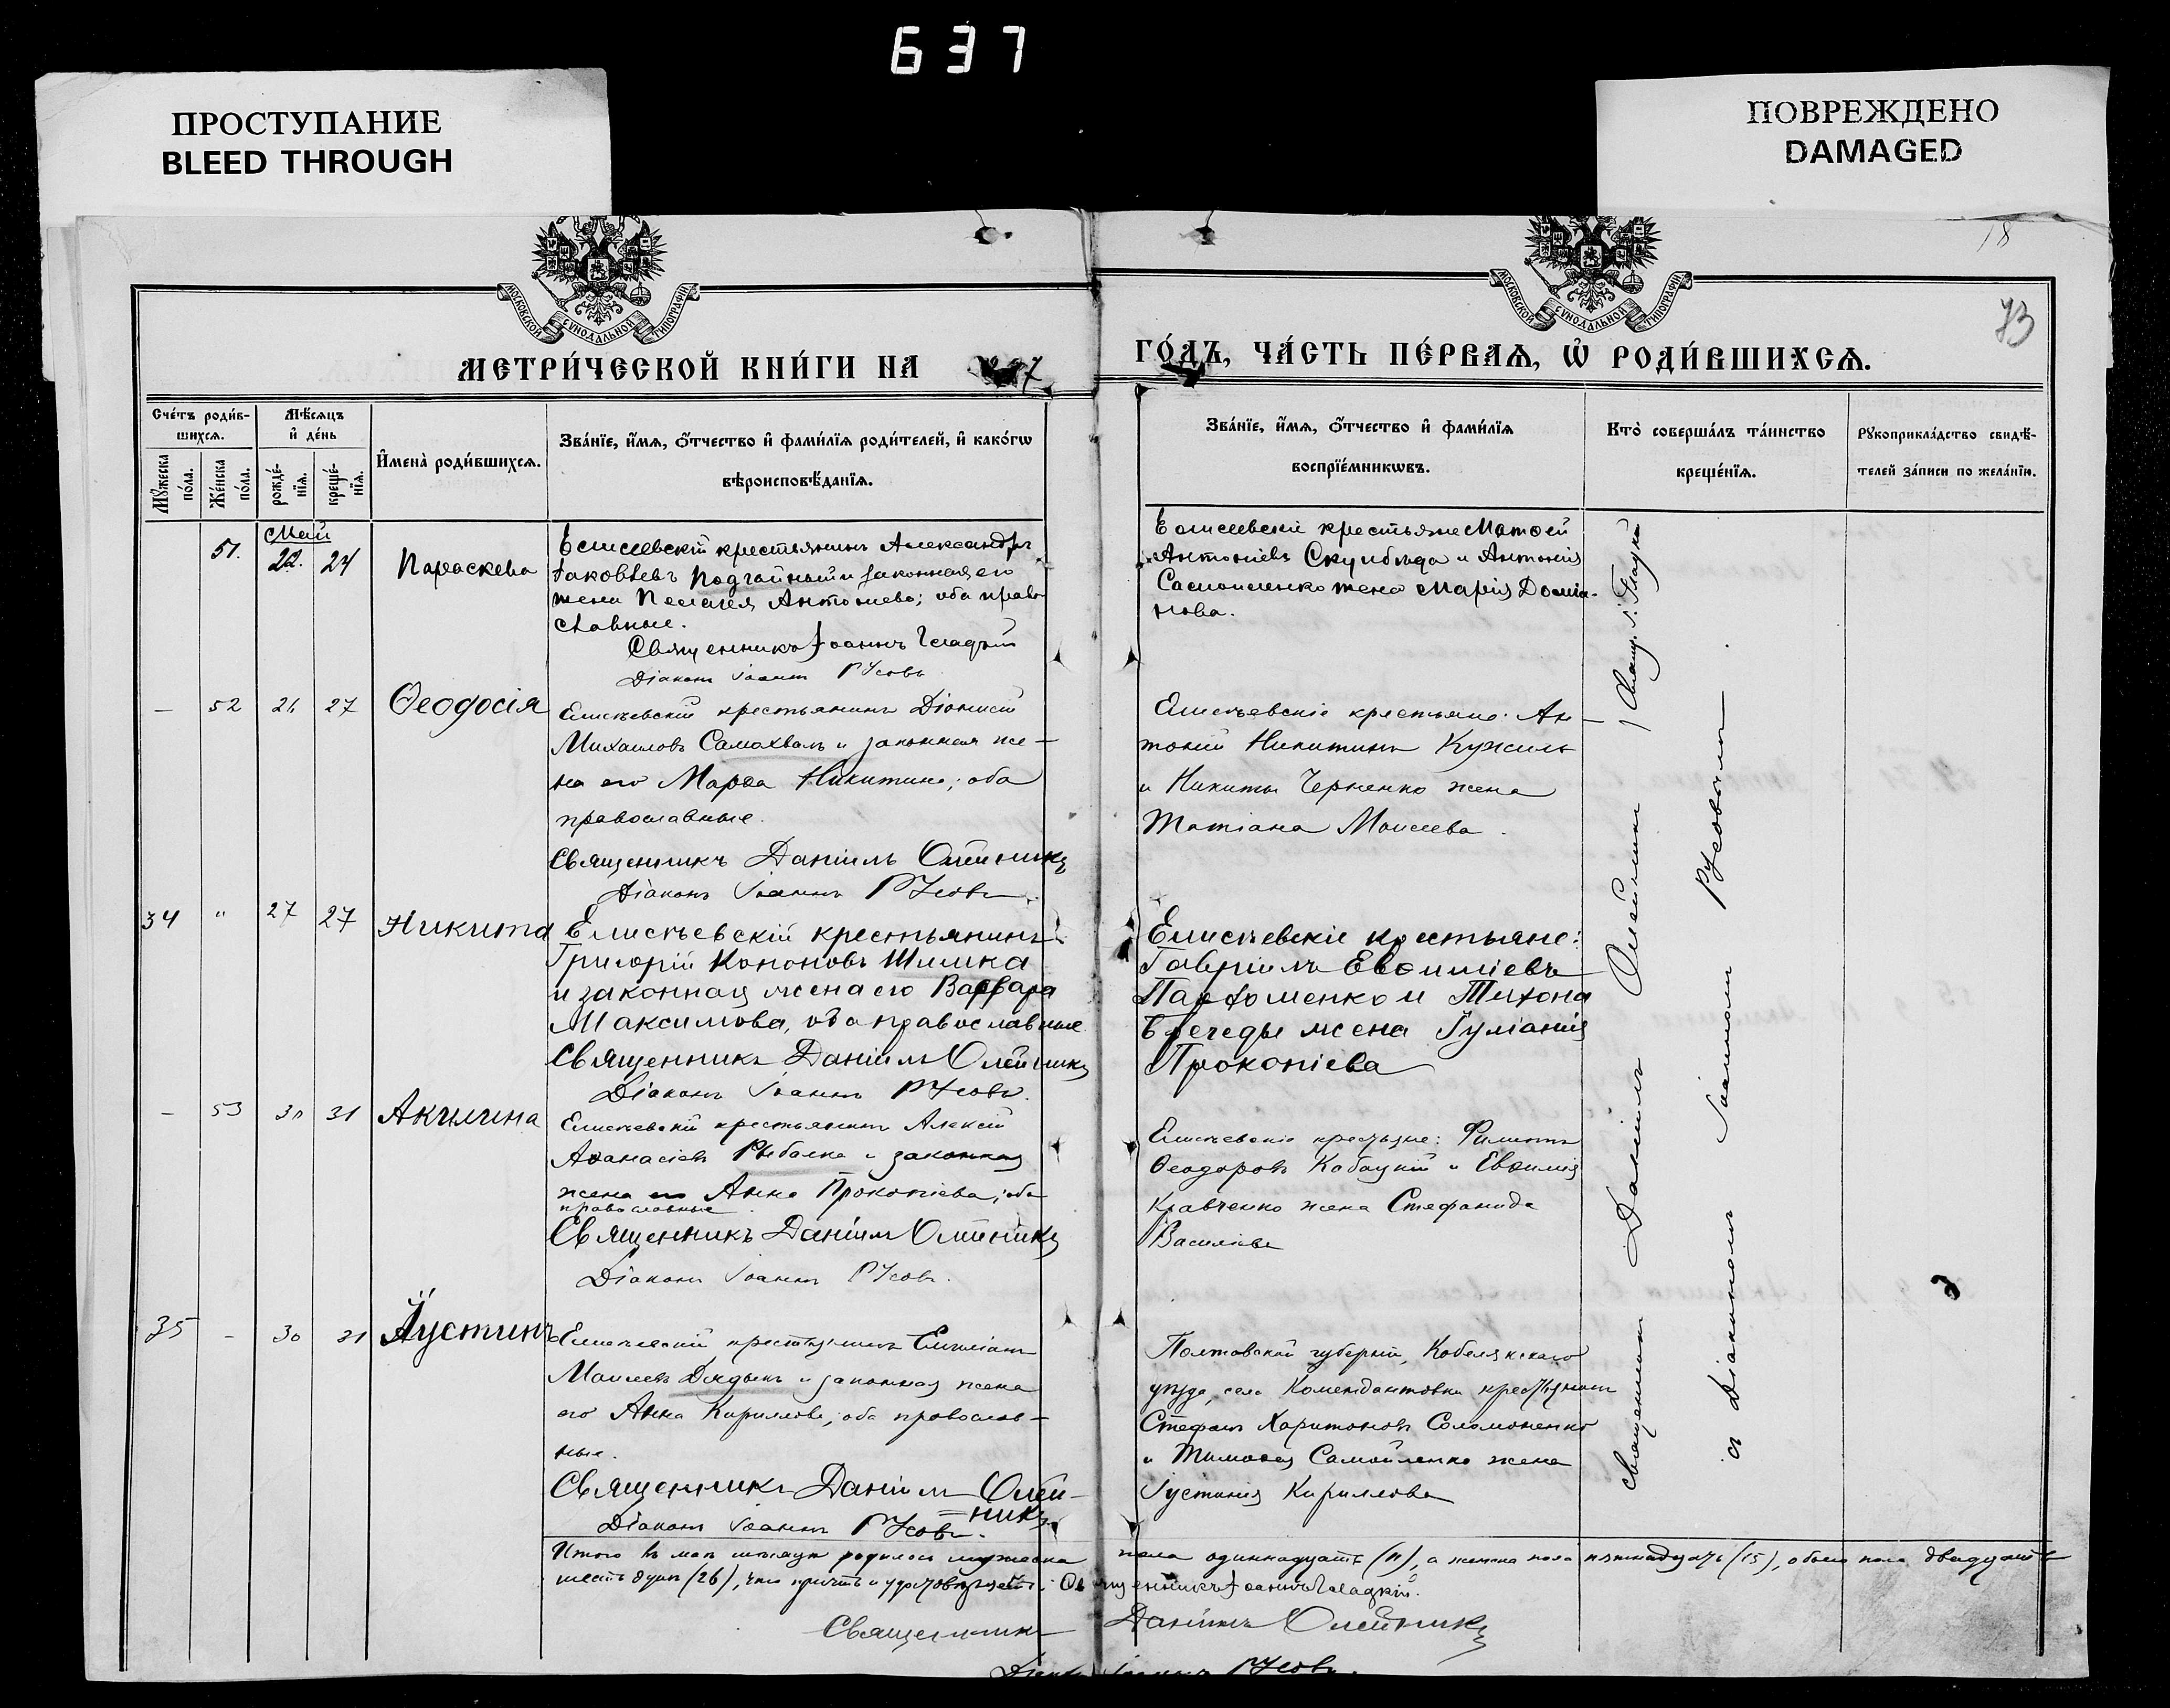 637
ПРОСТУПАНИЕ
BLEED THROUGH
ПОВРЕЖДЕНО
DAMAGED
18
73
МОСКОВСКОЙ СѴНОДАЛЬНОЙ ТИПОГРАФІИ
МОСКОВСКОЙ СѴНОДАЛЬНОЙ ТИПОГРАФІИ
МЕТРИ́ЧЕСКОЙ КНИ́ГИ НА
ГО́ДЪ, ЧА́СТЬ ПЕ́РВАѦ, Ѡ РОДИ́ВШИХСѦ.
Сче́тъ роди́в-
шихсѧ.
Мѣ́сѧцъ
и҆ де́нь
Мꙋ́жеска
по́ла.
Же́нска
по́ла.
рожде́-
нїѧ.
креще́-
нїѧ.
И҆мена̀ роди́вшихсѧ.
Зва́нїе, и҆́мѧ, ѻ҆́тчество и҆ фами́лїѧ роди́телей, и҆ како́гѡ
вѣроисповѣ́данїѧ.
Зва́нїе, и҆́мѧ, ѻ҆́тчество и҆ фами́лїѧ
воспрїе́мникѡвъ.
Кто̀ соверша́лъ та́инство
креще́нїѧ.
Рꙋкоприкла́дство свидѣ́-
телей за́писи по жела́нїю.
Май
51. 22. 24 Параскева
Елисеевскій крестьянинъ Александръ
Іаковлевъ Подгайный и законная его
жена Пелагея Антониева; оба право-
славные.
Священникъ Іоаннъ Гладкій
Діаконъ Іоаннъ Русовъ
Елисеевскіе крестьяне Матѳей
Антоніевъ Скумбѣда и Антонія
Самойленко жена Марія Доміа-
нова.
— 52 26 27 Ѳеодосія
Елисѣевскій крестьянинъ Діонисій
Михаиловъ Самохвалъ и законная же-
на его Марѳа Никитина; оба
православные.
Священникъ Даніилъ Олейникъ
Діаконъ Іоаннъ Русовъ
Елисѣевскіе крестьяне: Ан-
тоній Никитинъ Кужиль
и Никиты Черненко жена
Татіана Моисеева.
34 " 27 27 Никита
Елисѣевскій крестьянинъ
Григорій Кононовъ Шишка
и законная жена его Варвара
Максимова, оба православные
Священникъ Даніилъ Олейникъ
Діаконъ Іоаннъ Русовъ.
Елисѣевскіе крестьяне:
Гавріилъ Евѳиміевъ
Пархоменко и Тихона
Бречеды жена Іуліанія
Прокопіева
— 53 30 31 Акилина
Елисѣевскій крестьянинъ Алексій
Аѳанасіевъ Рыбалка и законная
жена его Анна Прокопіева; оба
православные
Священникъ Даніилъ Олейникъ
Діаконъ Іоаннъ Русовъ.
Елисѣевскіе крестьяне: Филиппъ
Ѳеодоровъ Кабацкій и Евѳимія
Кравченко жена Стефанида
Василіева
35 - 30 31 Іустинъ
Елисѣевскій крестьянинъ Емиліанъ
Моисеевъ Дядыкъ и законная жена
его Анна Кириллова; оба православ-
ные.
Священникъ Даніилъ Олей-
никъ
Діаконъ Іоаннъ Русовъ.
Полтавской губерніи, Кобелякскаго
уѣзда, села Комендантовки крестьянинъ
Стефанъ Харитоновъ Соломоненко
и Тимоѳея Самойленко жена
Іустинія Кириллова
Свящ. І. Гладкій
священникъ Даніилъ Олейникъ
съ Діакономъ Іоанномъ Русовымъ
Итого въ маѣ мѣсяцѣ родилось мужеска пола одиннадцать (11), а женска пола пятнадцать (15), обоего пола двадцать
шесть душъ (26), что причтъ и удостовѣряетъ: Священникъ Іоаннъ Гладкій.
Священникъ Даніилъ Олейникъ
Діаконъ Іоаннъ Русовъ.